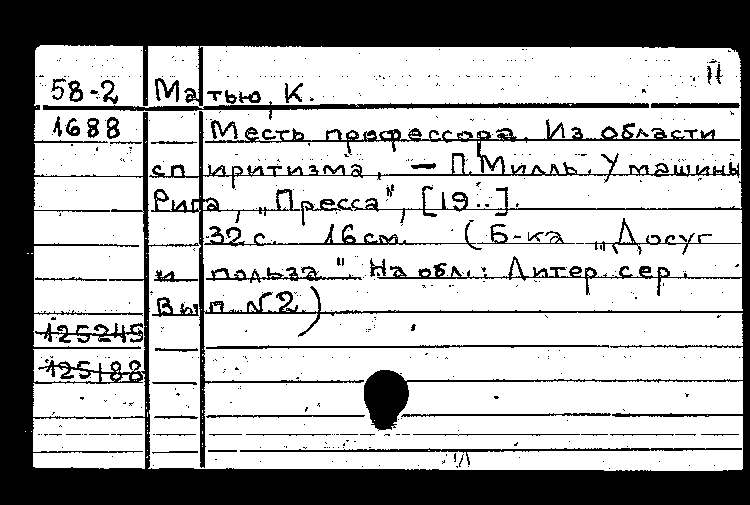 11
58-2 Матью, К.
1688 Месть профессора. Из области
спиритизма, — П. Милль. У машины
Рига, „Пресса", [19..].
32 с. 16 см. (Б-ка „Досуг
и польза". На обл.: Литер. сер.
Вып. №2.)
125245
125188